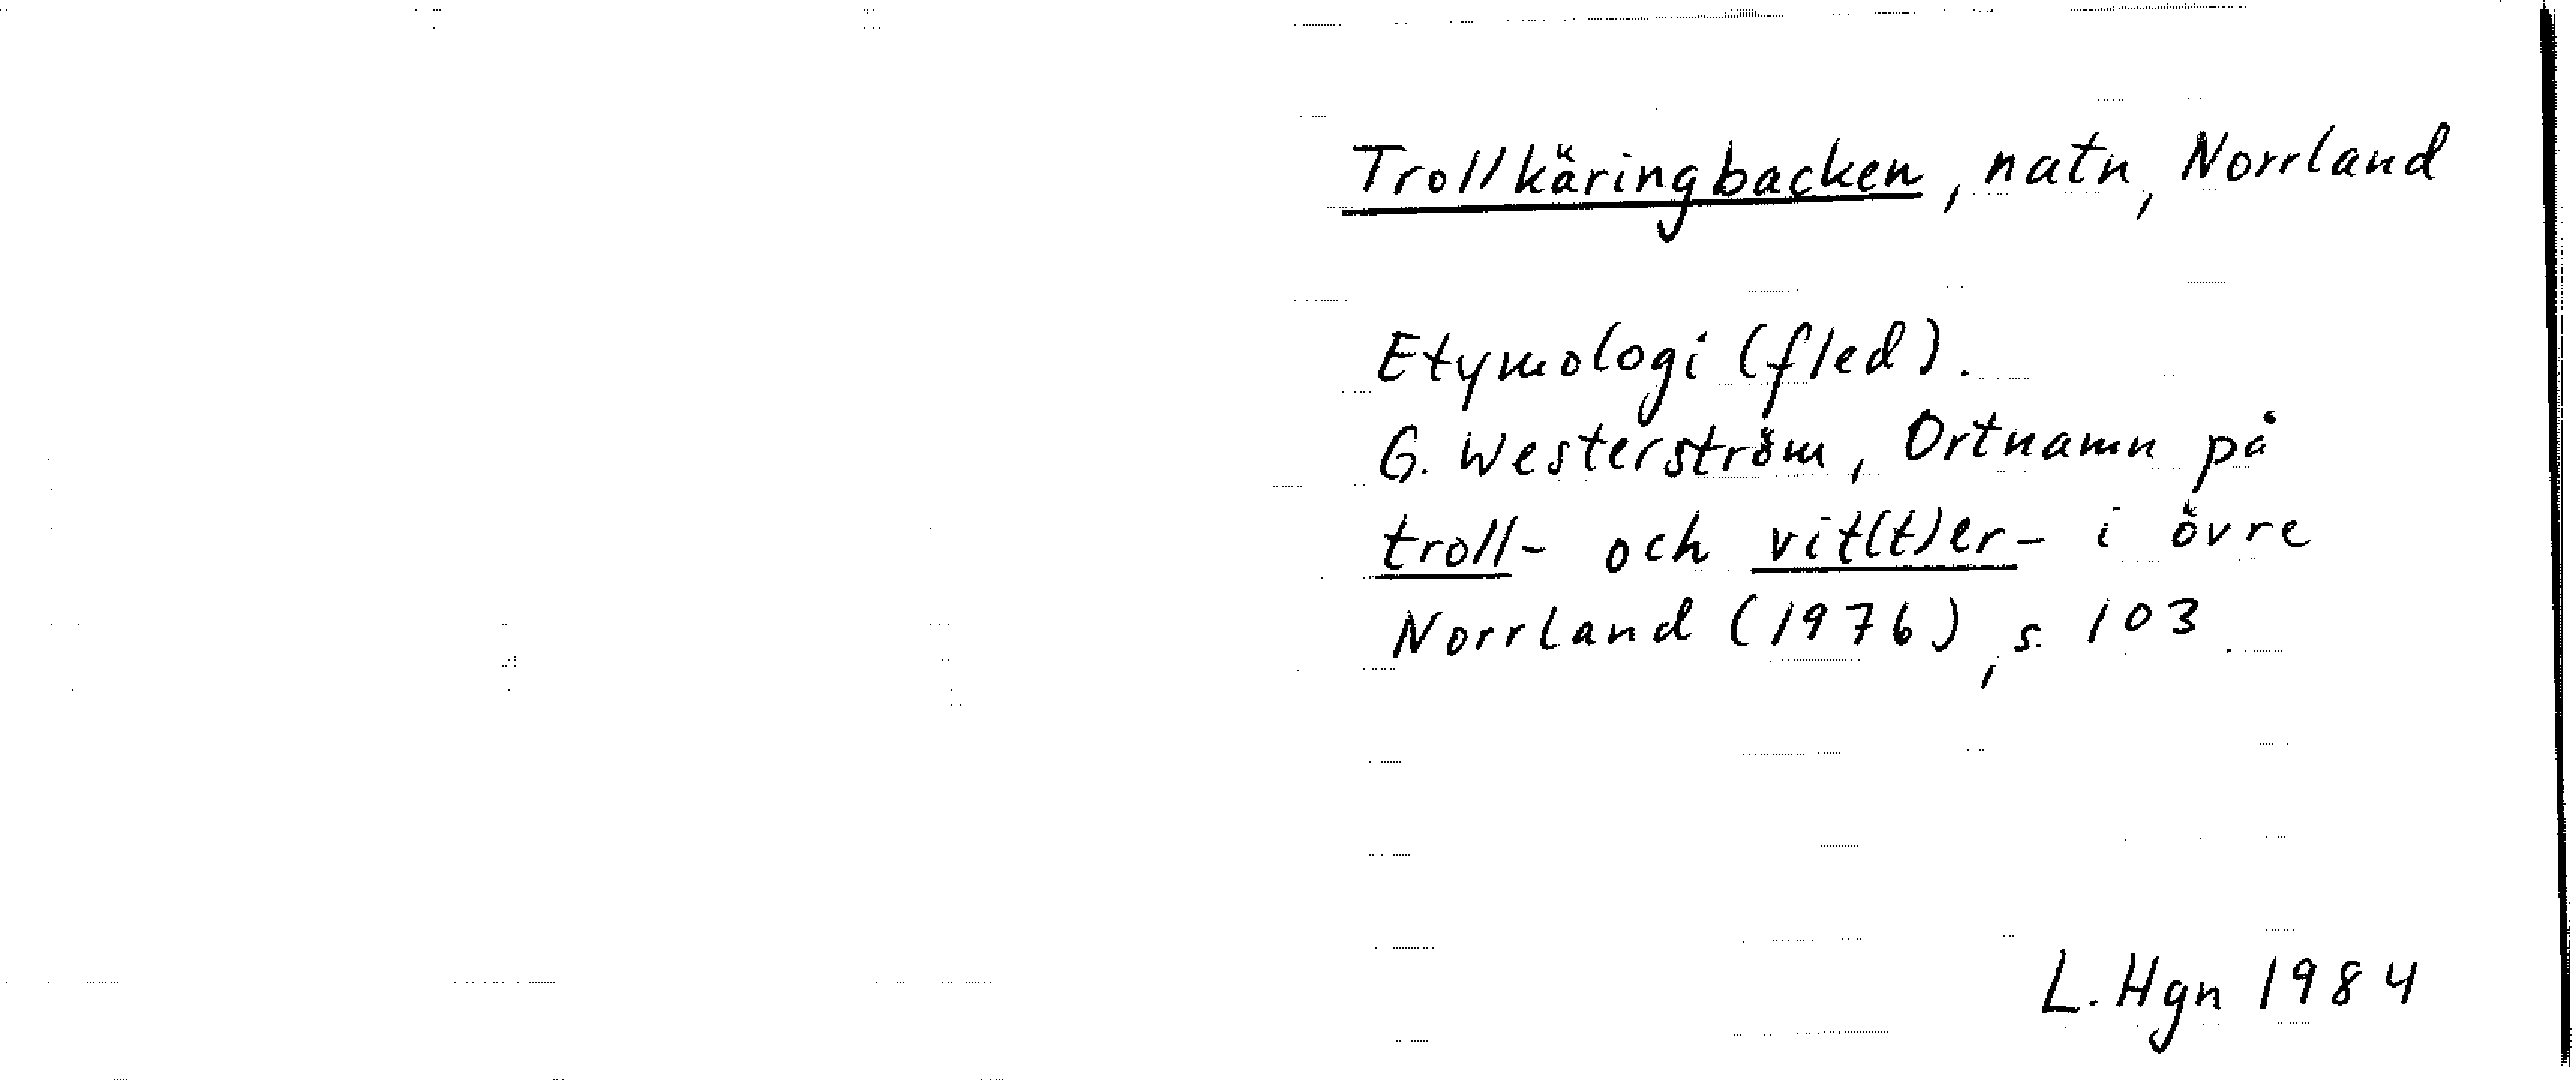 Trollkäringbacken, natn, Norrland
Etymologi (fled).
G. Westerström, Ortnamn på
troll- och vit(t)er- i övre
Norrland (1976), s. 103.
L. Hgn 1984